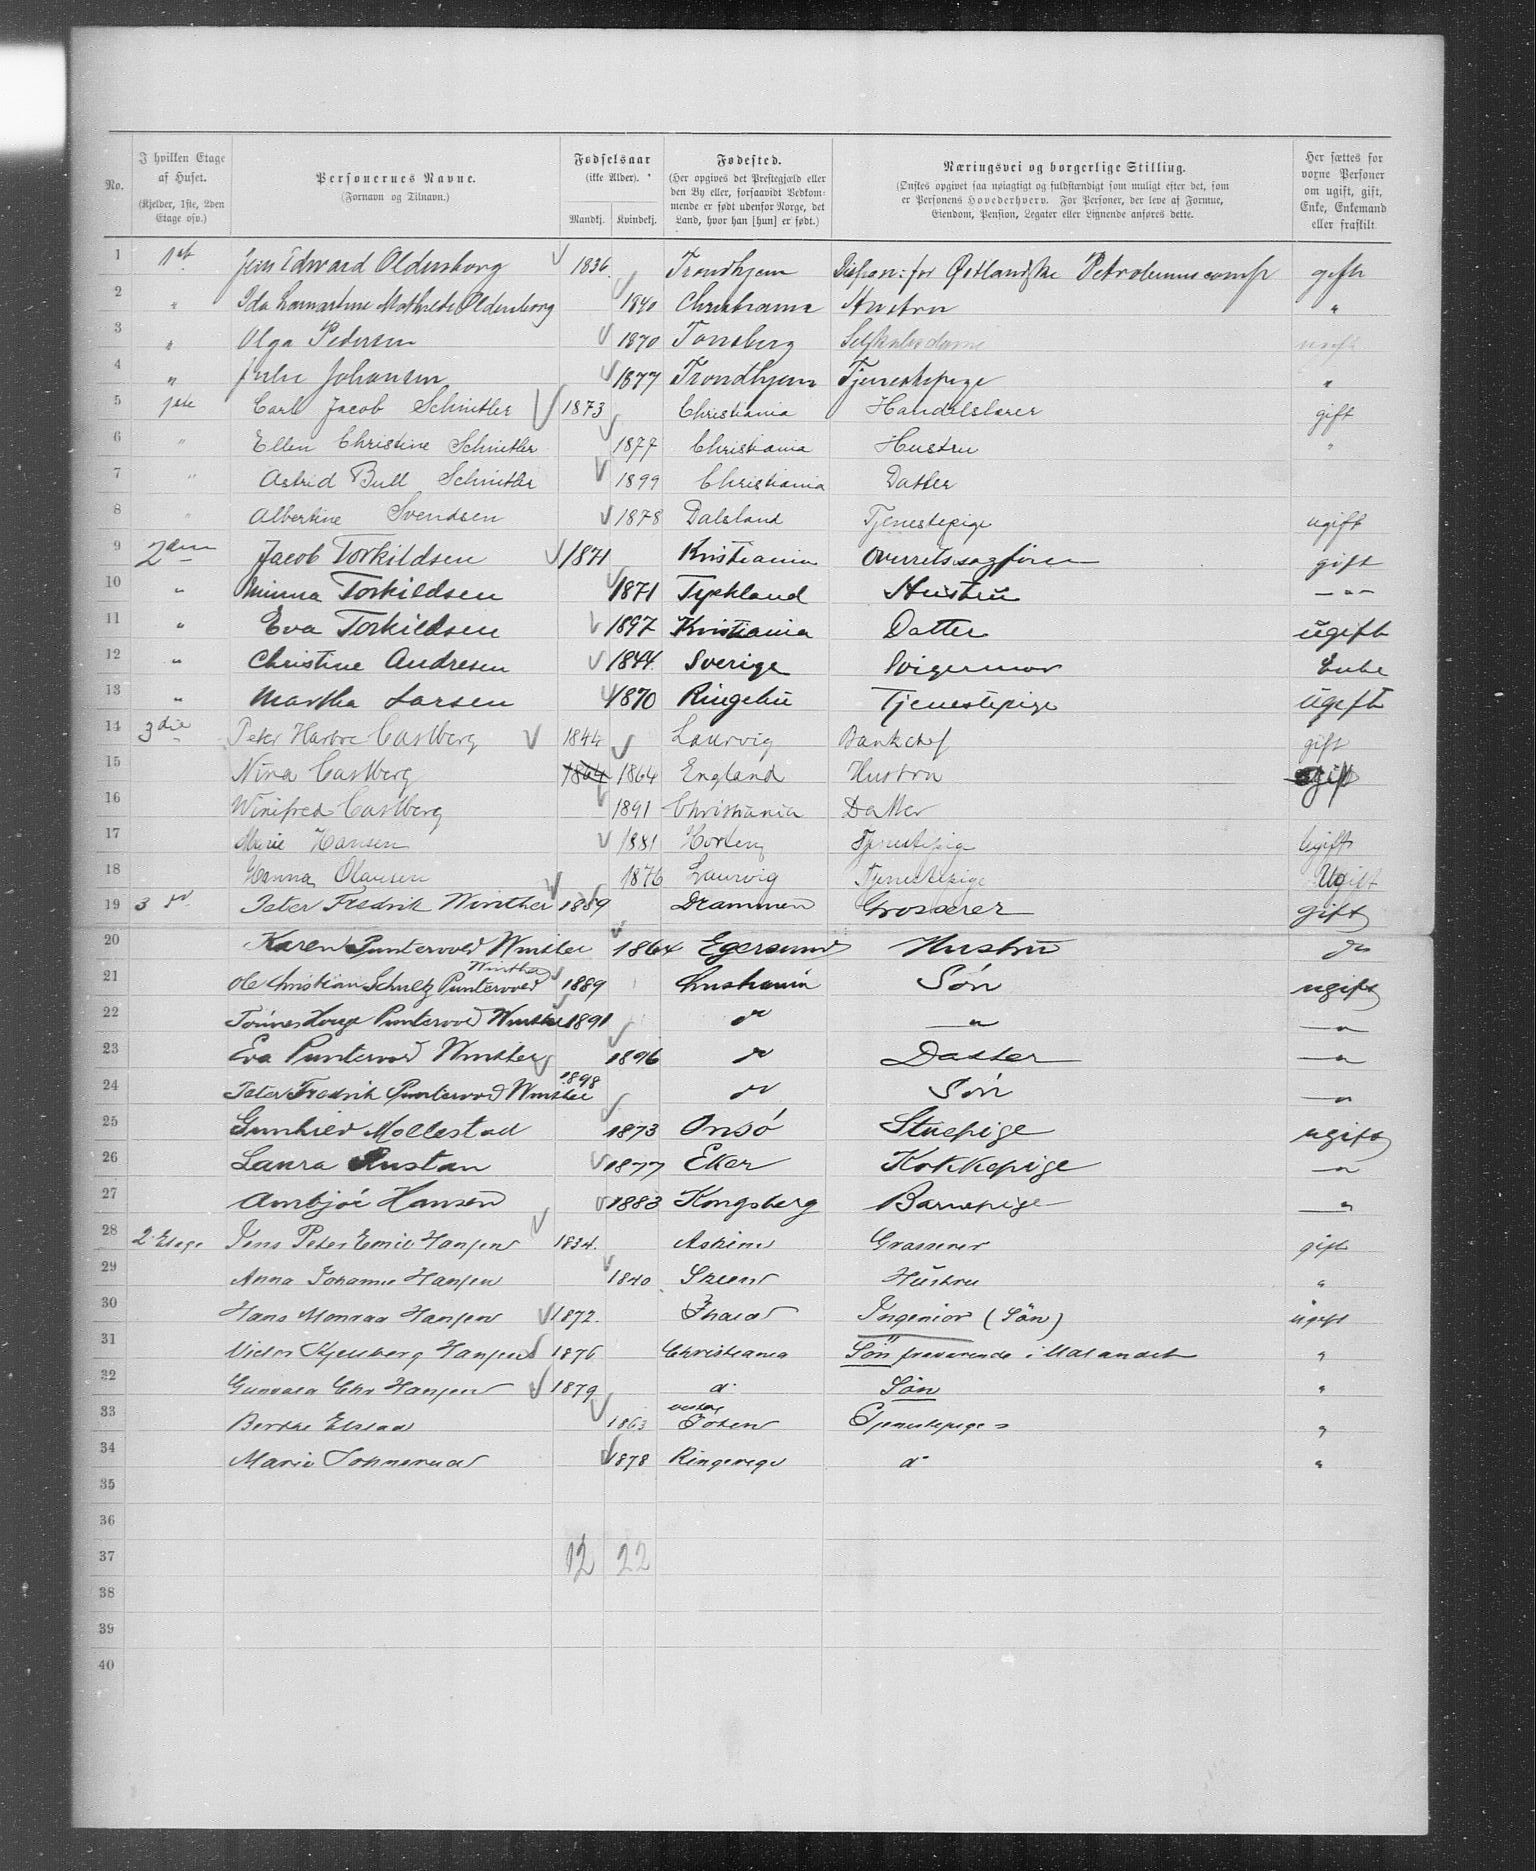 No. I hvilken Etage af Huset. (Kjelder, 1ste, 2den Etage osv.) Personernes Navne. (Fornavn og Tilnavn.) Fødselsaar (ikke Alder). Mandkj. Kvindekj. Fødested. (Her opgives det Prestegjæld eller den By eller, forsaavidt Vedkommende er født udenfor Norge, det Land, hvor han [hun] er født.) Næringsvei og borgerlige Stilling. (Ønskes opgivet saa nøiagtigt og fuldstændigt som muligt efter det, som er Personens Hovederhverv. For Personer, der leve af Formue, Eiendom, Pension, Legater eller Lignende anføres dette.) Her sættes for voxne Personer om ugift, gift, Enke, Enkemand eller fraskilt.
1 1st Jens Edward Oldenborg 1836 Trondhjem Dispon: for Østlandske Petroleumscomp gift
2 " Ida Lamartine Mathilde Oldenborg 1840 Christiania Hustru "
3 " Olga Pedersen 1870 Tønsberg Selskabsdame ugift
4 " Julie Johansen 1877 Trondhjem Tjenestepige "
5 1ste Carl Jacob Schnitler 1873 Christiania Handelslærer gift
6 " Ellen Christine Schnitler 1877 Christiania Hustru "
7 " Astrid Bull Schnitler 1899 Christiania Datter
8 " Albertine Svendsen 1878 Dalsland Tjenestepige ugift
9 2den Jacob Torkildsen 1871 Kristiania Overretssagfører gift
10 " Minna Torkildsen 1871 Tyskland Hustru — " —
11 " Eva Torkildsen 1897 Kristiania Datter ugift
12 " Christine Andresen 1844 Sverige Svigermor Enke
13 " Martha Larsen 1870 Ringebu Tjenestepige ugift
14 3die Peter Harboe Castberg 1844 Laurvig Bankchef gift
15 Nina Castberg 1864 1864 England Hustru gift
16 Winifred Castberg 1891 Christiania Datter
17 Marie Hansen 1881 Horten Tjenestepige Ugift
18 Hanna Olausen 1876 Laurvig Tjenestepige Ugift
19 3 Peter Fredrik Winther 1859 Drammen Grosserer gift
20 Karen Puntervold Winther 1864 Egersund Hustru do
21 Ole Christian Schultz Puntervold Winther 1889 Christiania Søn ugift
22 Tønnes Hauge Puntervold Winther 1891 do — " — "
23 Eva Puntervold Winther 1896 do Datter — "
24 Peter Fredrik Puntervold Winther 1898 do Søn — "
25 Gunhild Mollestad 1873 Onsø Stuepige ugift
26 Laura Rustan 1877 Eker Kokkepige — "
27 Ambjør Hansen 1883 Kongsberg Barnepige — "
28 2 Etage Jens Peter Emil Hansen 1834. Askim Grosserer gift
29 Anna Johanne Hansen 1840 Skien Hustru "
30 Hans Monrad Hansen 1872. Ingeniør (Søn) ugift
31 Victor Kjelsberg Hansen 1876 Christiania Søn fraværende i Udlandet "
32 Gunvald Chr Hansen 1879 d. Søn "
33 Berthe Elstad 1863 Vestre Toten Tjenestepige "
34 Marie 1878 Ringerige d. "
35
36
37 12 22
38
39
40